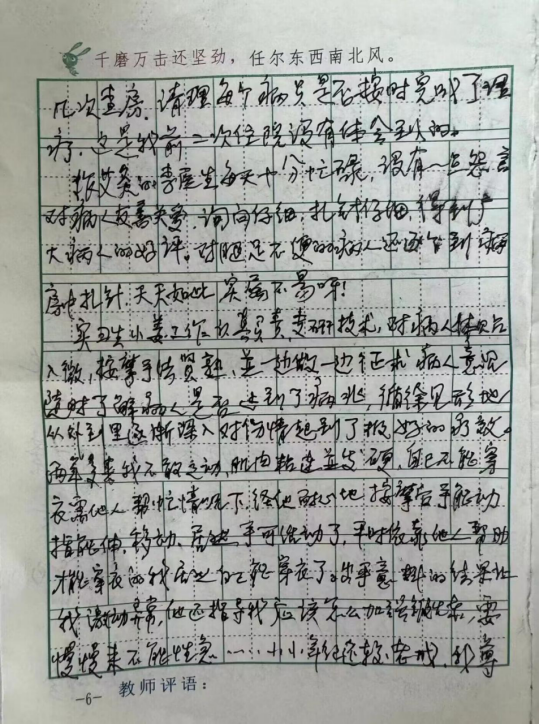 千磨万击还坚劲，任尔东西南北风。
几次查房，清理每个病员是否按时完成了理
疗，这是我前二次住院没有体会到的。
扎艾灸的李医生每天十分忙碌，没有一点怨言
对病人友善关爱，询问仔细，扎针仔细，得到广
大病人的好评。对腿足不便的病人还逐个到病
房中扎针，天天如此实属不易呀！
实习生小姜工作认真负责，专研技术，对病人体贴
入微，按摩手法娴熟，并一边做一边征求病人意识
随时了解病人是否达到了病兆，循徐里形地
从外到里逐渐深入对伤情起到了很好的疗效。
两年多来我不敢运动，肌肉粘连并发硬，自己不能穿
衣需他人帮忙情况下，经他耐心地按摩后手能动
指能伸，移动，居然手可活动了，平时依靠他人帮助
才能穿衣的我居然自己能穿衣了。出乎意料的结果让
我激动异常，他还指导我应该怎么加强锻炼，要
慢慢来不能性急……小小年纪还敬老戒，我尊
-6- 教师评语：